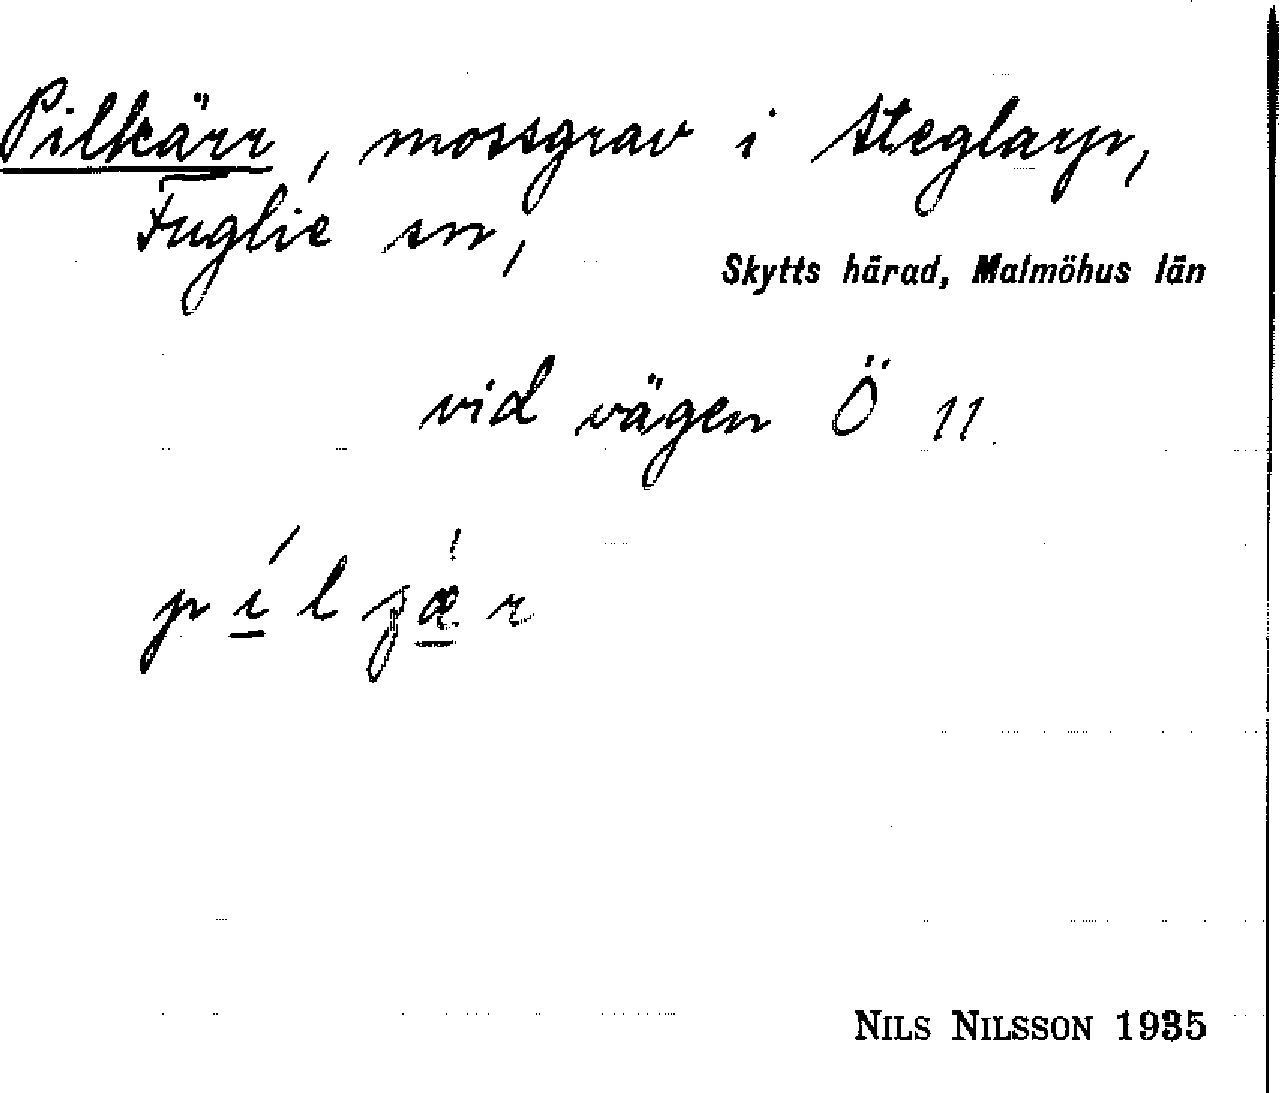 Pilkärr, mossgrav i Steglarp,
Fuglie sn,
Skytts härad, Malmöhus län
vid vägen Ö 11.
NILS NILSSON 1935